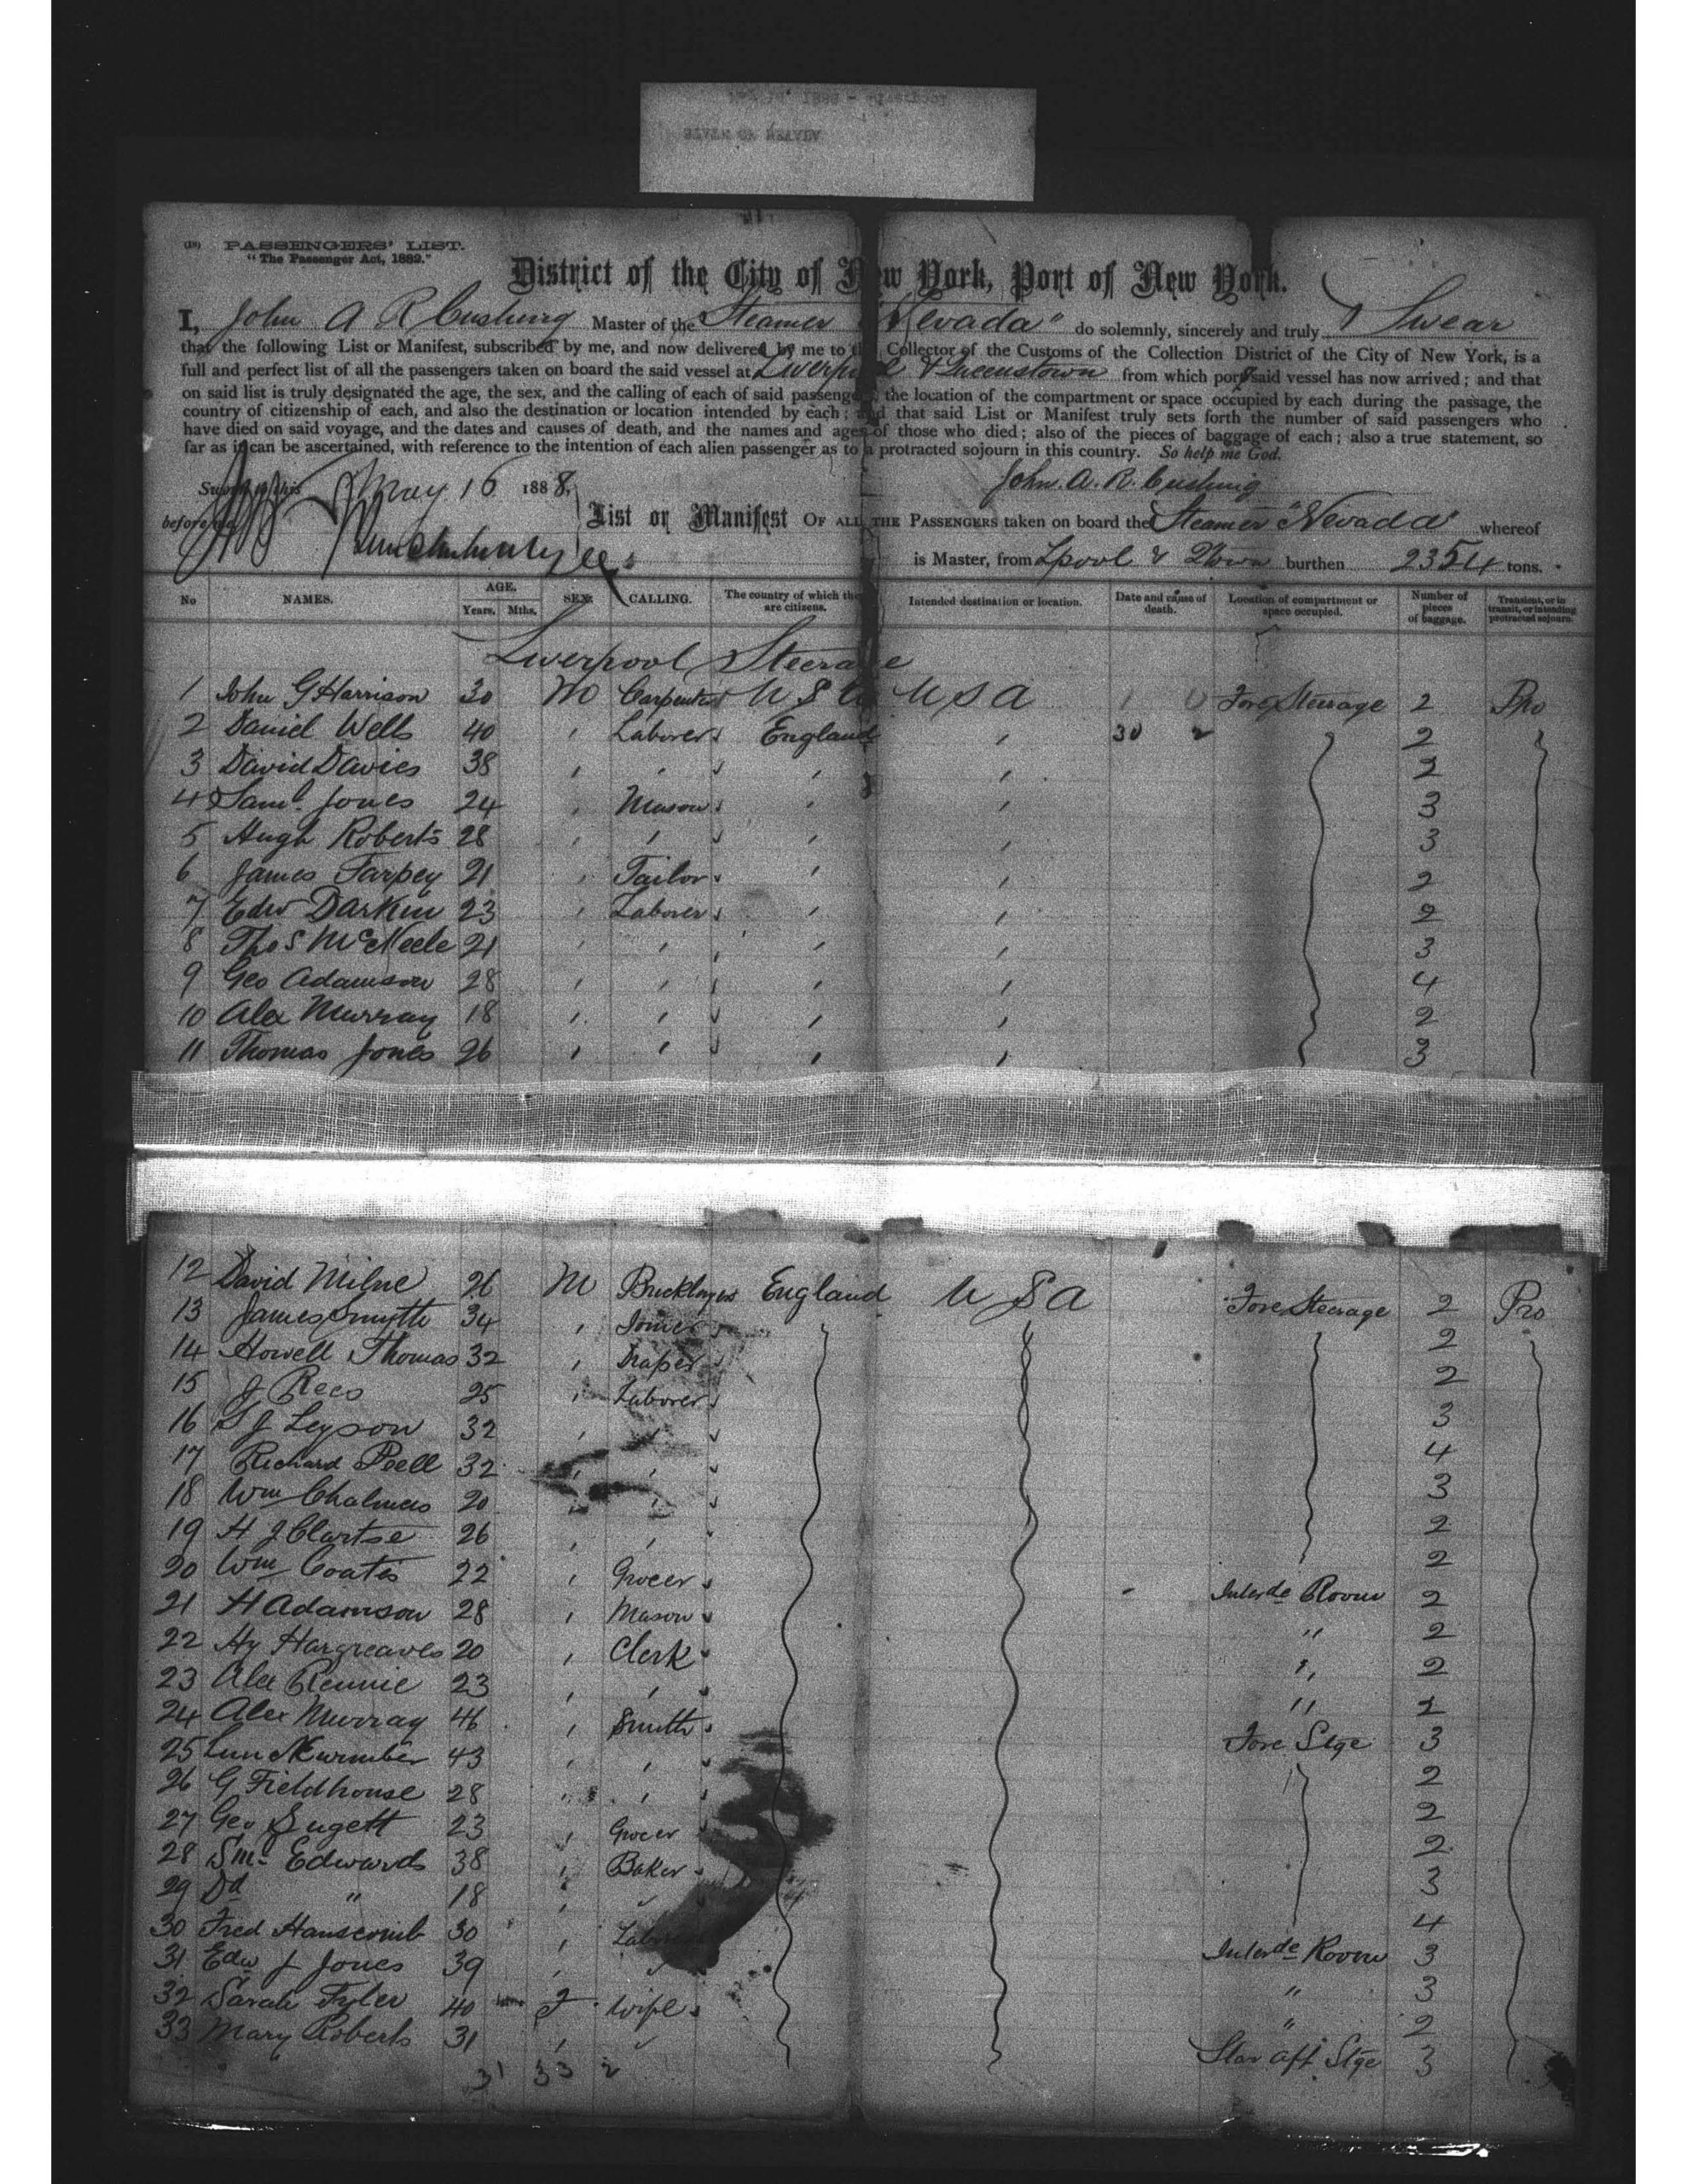 (18) PASSENGERS' LIST.
"The Passenger Act, 1882."
District of the City of New York, Port of New York.
I, John A R Cushing Master of the Steamer "Nevada" do solemnly, sincerely and truly Swear
that the following List or Manifest, subscribed by me, and now delivered by me to the Collector of the Customs of the Collection District of the City of New York, is a
full and perfect list of all the passengers taken on board the said vessel at Liverpool & Queenstown from which port said vessel has now arrived; and that
on said list is truly designated the age, the sex, and the calling of each of said passengers, the location of the compartment or space occupied by each during the passage, the
country of citizenship of each, and also the destination or location intended by each; and that said List or Manifest truly sets forth the number of said passengers who
have died on said voyage, and the dates and causes of death, and the names and ages of those who died; also of the pieces of baggage of each; also a true statement, so
far as it can be ascertained, with reference to the intention of each alien passenger as to a protracted sojourn in this country. So help me God.
Sworn to this May 16 1888, John. A. R. Cushing
before me
List or Manifest OF ALL THE PASSENGERS taken on board the Steamer "Nevada" whereof
is Master, from Lpool & Qtown burthen 2354 tons.
No NAMES. AGE. Years. Mths. SEX. CALLING. The country of which they are citizens. Intended destination or location. Date and cause of death. Location of compartment or space occupied. Number of pieces of baggage. Transient, or in transit, or intending protracted sojourn.
Liverpool Steerage
1 John G Harrison 30 M Carpenter U S A U S A Fore Steerage 2 Pro
2 Daniel Wells 40 " Laborer England " 30 2 2
3 David Davies 38 " " " " 2
4 Saml. Jones 24 " Mason " " 3
5 Hugh Roberts 28 " " " " 3
6 James Tarpey 21 " Tailor " " 2
7 Edw Darkin 23 " Laborer " " 2
8 Thos McNeele 21 " " " " 3
9 Geo Adamson 28 " " " " 4
10 Alex Murray 18 " " " " 2
11 Thomas Jones 26 " " " " 3
12 David Milne 26 M Bricklayer England U S A Fore Steerage 2 Pro
13 James Smyth 34 " Joiner 2
14 Howell Thomas 32 " Draper 2
15 J Rees 25 " Laborer 3
16 S J Leyson 32 " " 4
17 Richard Peell 32 " " 3
18 Wm Chalmers 20 " " 2
19 H J Clartse 26 " " 2
20 Wm Coates 22 " Grocer Interde Room 2
21 H Adamson 28 " Mason " 2
22 Hy Hargreaves 20 " Clerk " 2
23 Alex Rennie 23 " " " 2
24 Alex Murray 46 " Smith Fore Stge 3
25 43 " " 2
26 G Fieldhouse 28 " " 2
27 Geo Sugett 23 " Grocer 2
28 Sml. Edwards 38 " Baker 3
29 Dd " 18 " " 4
30 Fred Hanscomb 30 " Laborer Interde Room 3
31 Edw J Jones 39 " " " 3
32 Sarah Tyler 40 F Wife " 2
33 Mary Roberts 31 " " Star aft Stge 3
31 33 2